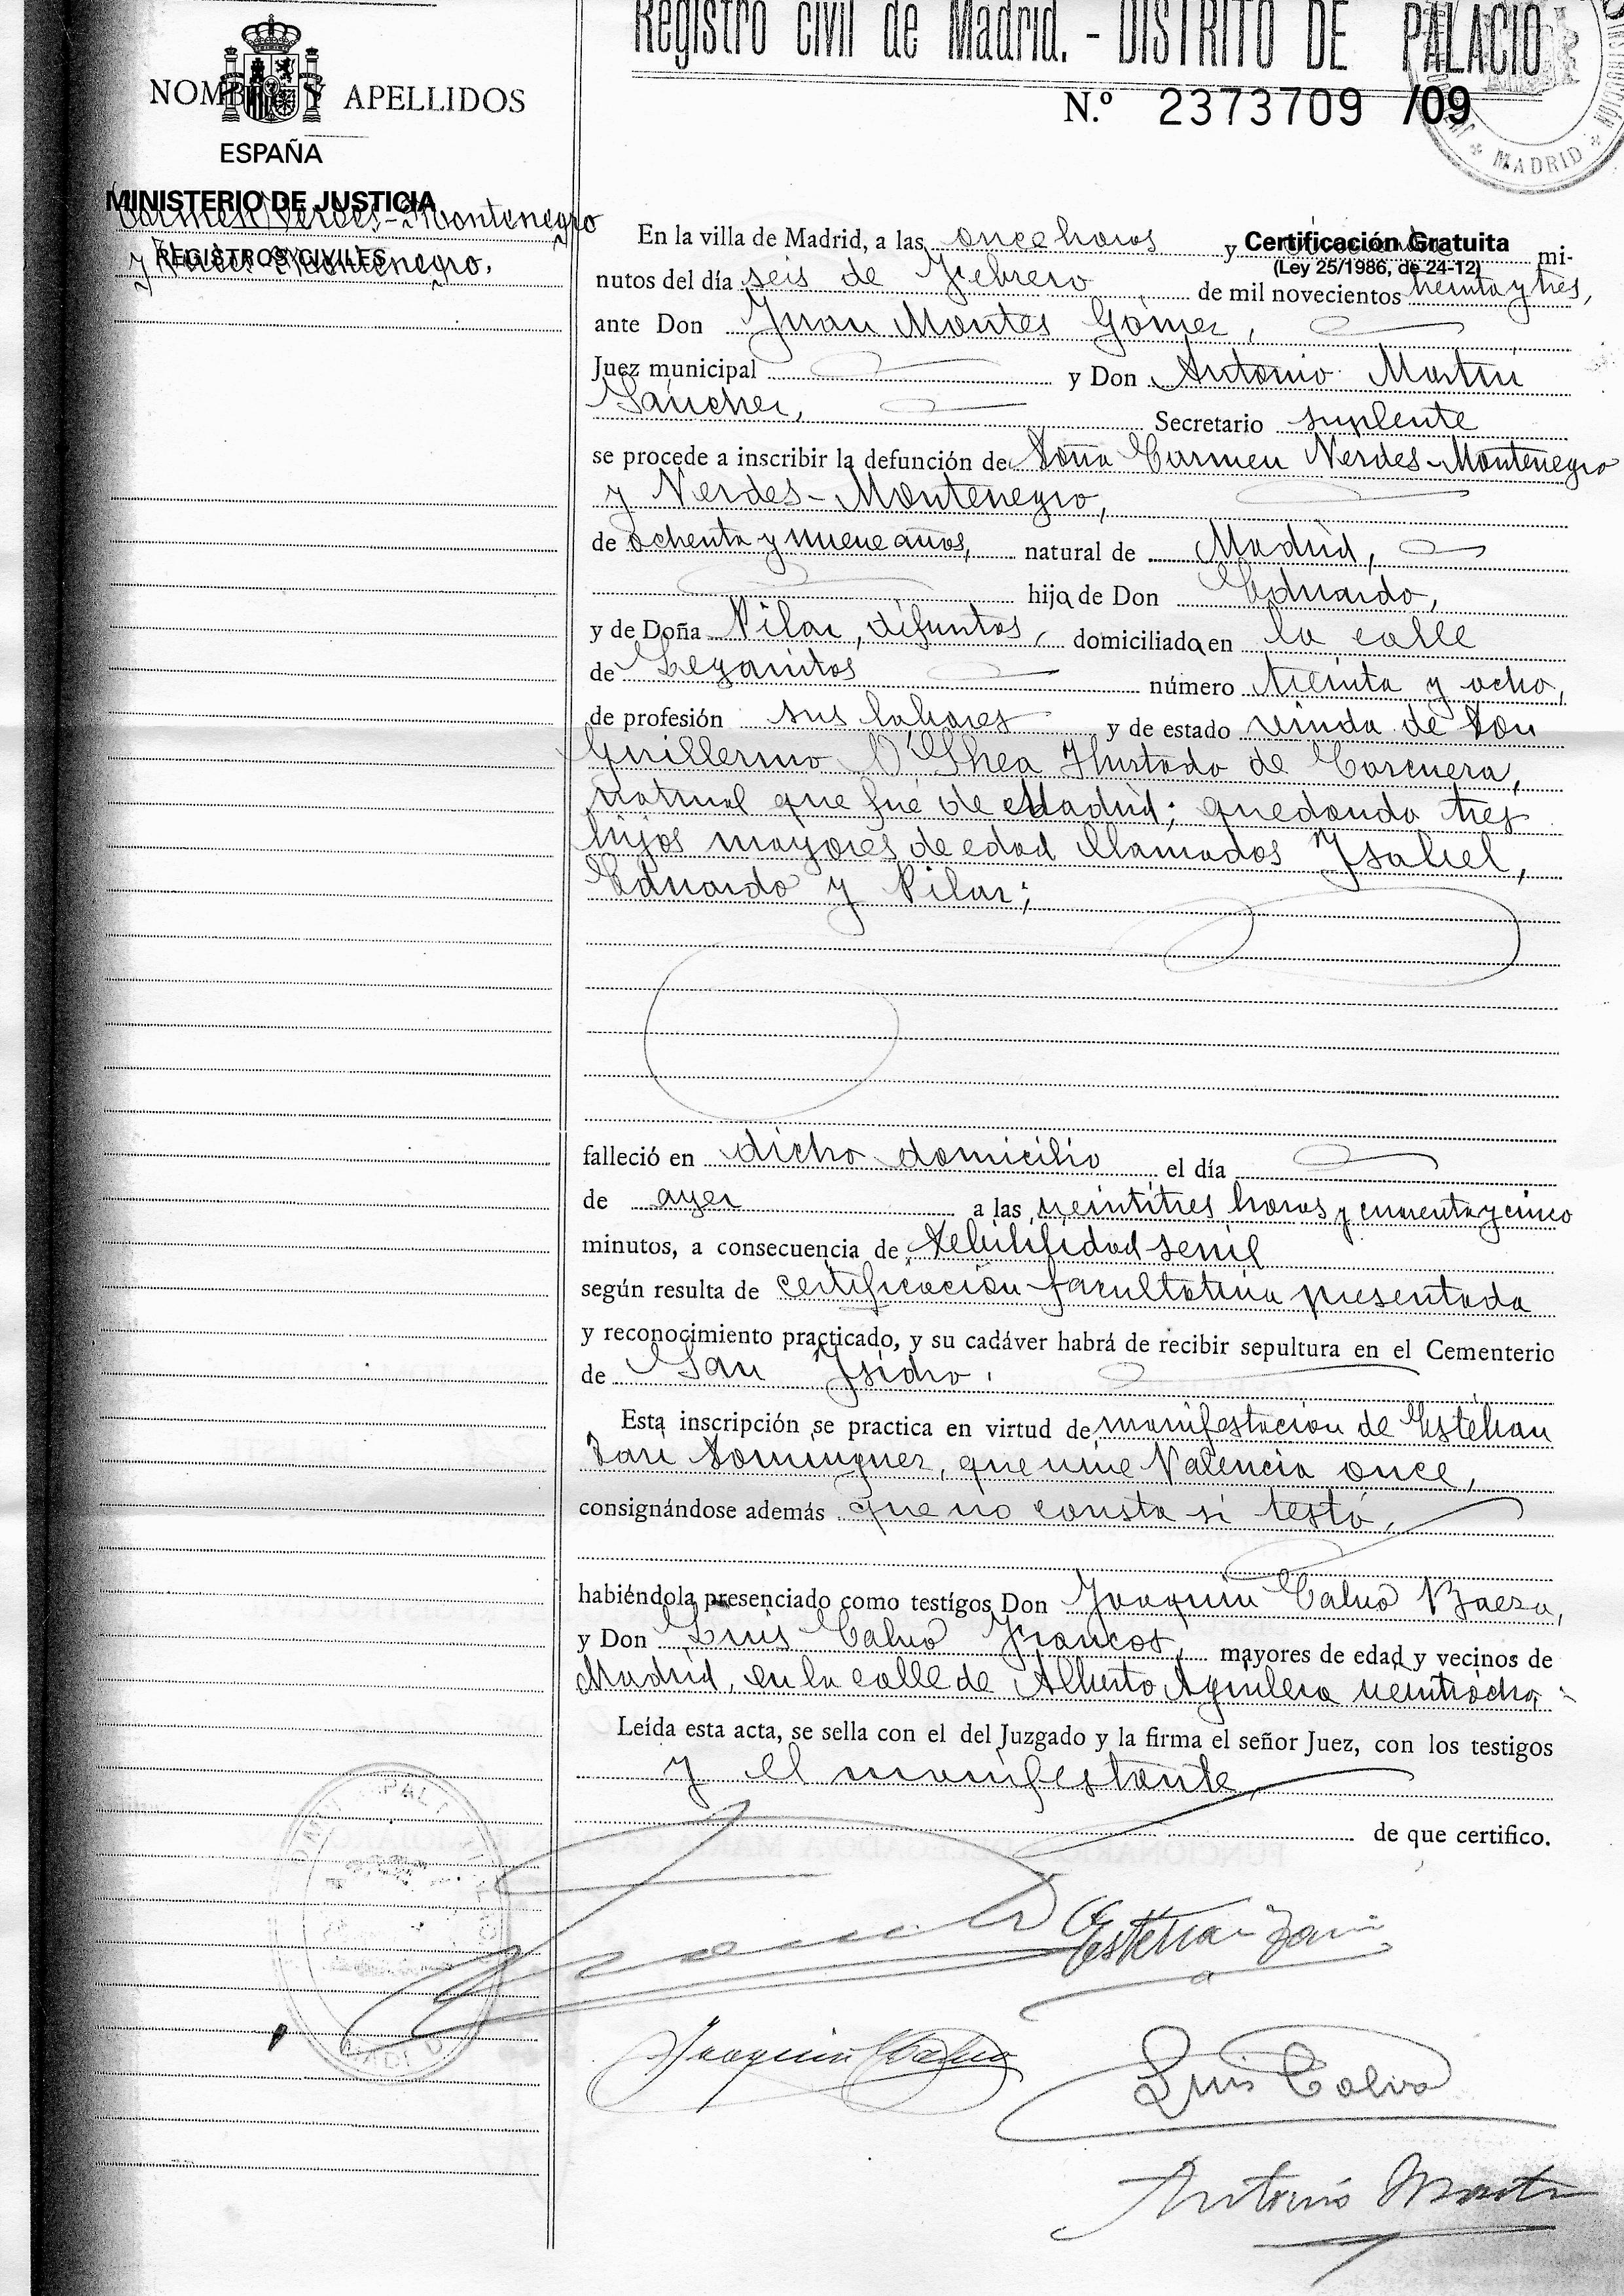 Registro civil de Madrid. - DISTRITO DE PALACIO
N.º 2373709 /09
MADRID
NOMBRE Y APELLIDOS
ESPAÑA
MINISTERIO DE JUSTICIA
REGISTROS CIVILES
Carmen Verdes-Montenegro
y Verdes-Montenegro.
Certificación Gratuita
(Ley 25/1986, de 24-12)
En la villa de Madrid, a las once horas y mi-
nutos del día seis de Febrero de mil novecientos treinta y tres,
ante Don Juan Montes Gómez,
Juez municipal y Don Antonio Martín
Sánchez, Secretario suplente
se procede a inscribir la defunción de Doña Carmen Verdes-Montenegro
y Verdes-Montenegro,
de ochenta y nueve años, natural de Madrid,
hija de Don Eduardo,
y de Doña Pilar, difuntos, domiciliada en la calle
de Leganitos número treinta y ocho,
de profesión sus labores y de estado viuda de Don
Guillermo O'Shea Hurtado de Corcuera,
natural que fué de Madrid; quedando tres
hijos mayores de edad llamados Ysabel,
Eduardo y Pilar;
falleció en dicho domicilio el día
de ayer a las veintitres horas y cuarenta y cinco
minutos, a consecuencia de debilidad senil
según resulta de certificación facultativa presentada
y reconocimiento practicado, y su cadáver habrá de recibir sepultura en el Cementerio
de San Ysidro.
Esta inscripción se practica en virtud de manifestación de Estéban
Dominguez, que vive Valencia once,
consignándose además que no consta si testó,
habiéndola presenciado como testigos Don Joaquin Calvo Baeza,
y Don Luis Calvo Francos, mayores de edad y vecinos de
Madrid, en la calle de Alberto Aguilera veintiocho,
Leída esta acta, se sella con el del Juzgado y la firma el señor Juez, con los testigos
y el manifestante,
de que certifico.
Esteban
Joaquin Calvo
Luis Calvo
Antonio Martin